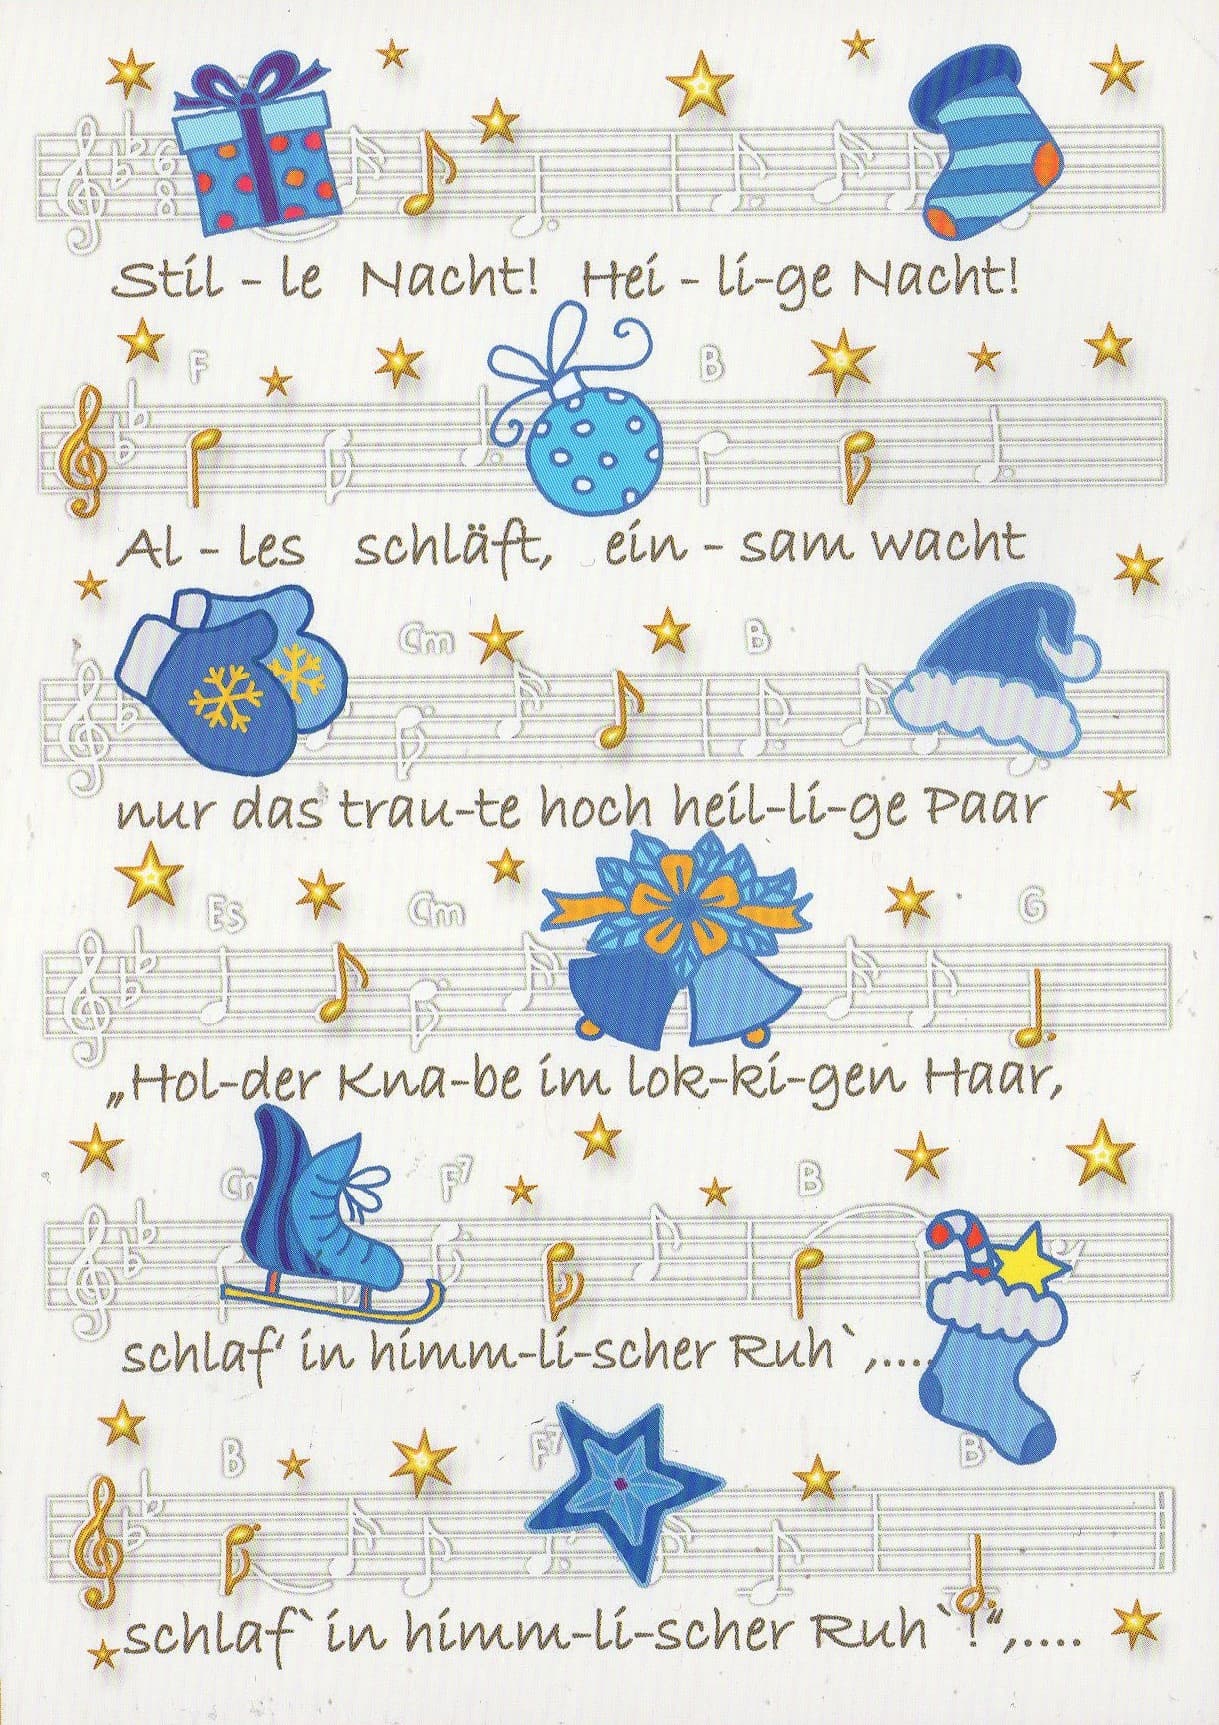 6
8
Stil - le Nacht! Hei - li-ge Nacht!
F B
Al - les schläft, ein - sam wacht
Cm B
nur das trau-te hoch heil-li-ge Paar
Es Cm G
„Hol-der Kna-be im lok-ki-gen Haar,
Cm F7 B
schlaf‘ in himm-li-scher Ruh`,....
B F7 B
schlaf`in himm-li-scher Ruh`!“,....